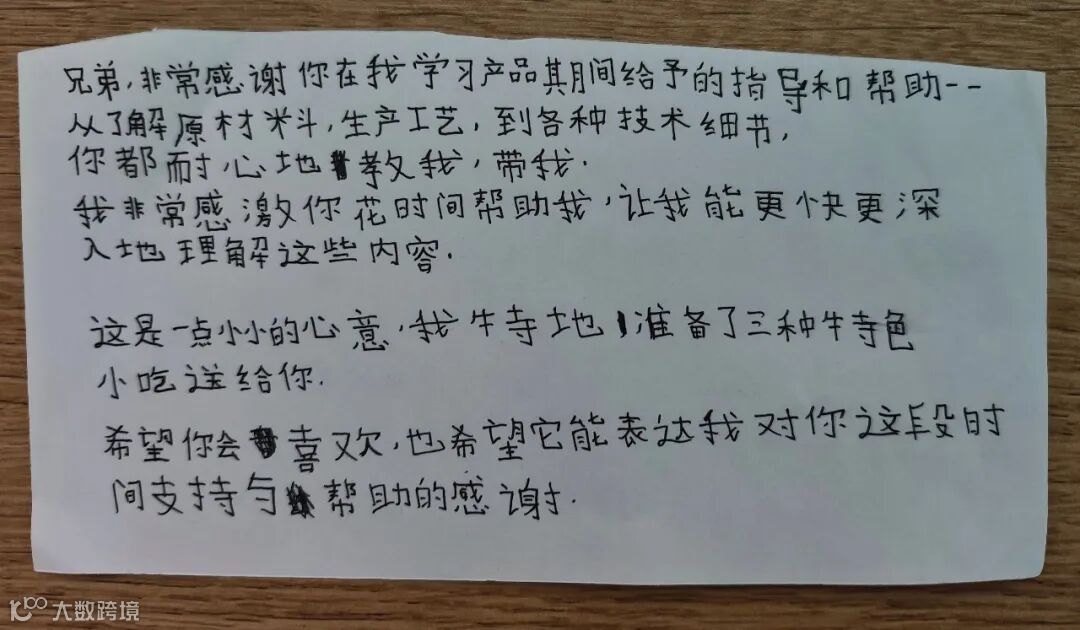 兄弟,非常感谢你在我学习产品其期间给予的指导和帮助--
从了解原材米斗,生产工艺,到各种技术细节,
你都耐心地教我,带我.
我非常感激你花时间帮助我,让我能更快更深
入地理解这些内容.
这是一点小小的心意,我特地准备了三种特色
小吃送给你.
希望你会喜欢,也希望它能表达我对你这段时
间支持与帮助的感谢.
大数跨境